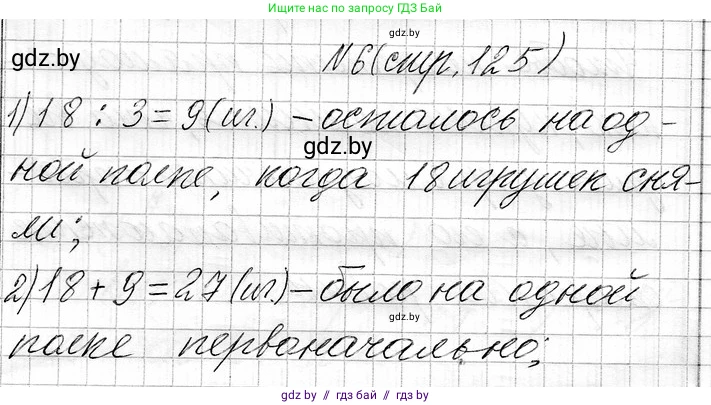 Ищите нас по запросу ГДЗ Бай
gdz.by
gdz.by
N6(стр. 125)
1) 18 : 3 = 9 (иг.) – осталось на од-
gdz.by
ной полке, когда 18 игрушек сня-
ли;
2) 18 + 9 = 27 (иг.) – было на одной
gdz.by
полке первоначально;
gdz.by // гдз.бай // gdz.by // гдз.бай // gdz.by